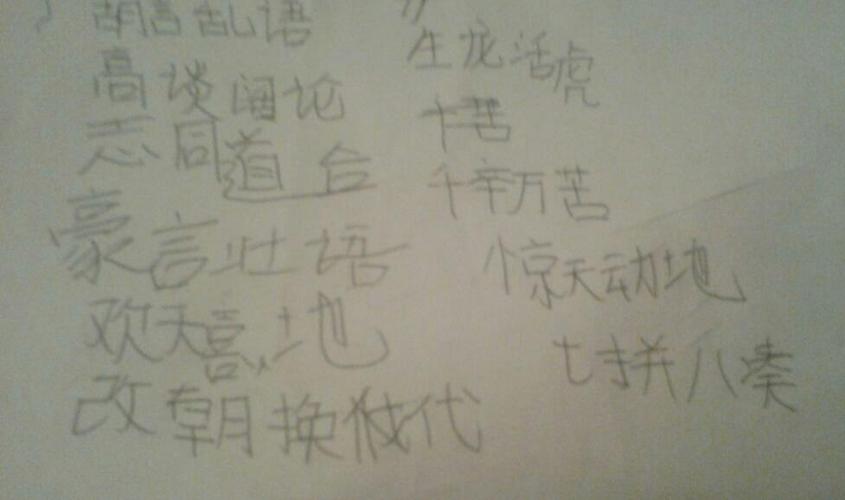 胡言乱语
高谈阔论
志同道合
豪言壮语
欢天喜地
改朝换代
生龙活虎
千苦
千辛万苦
惊天动地
七拼八凑